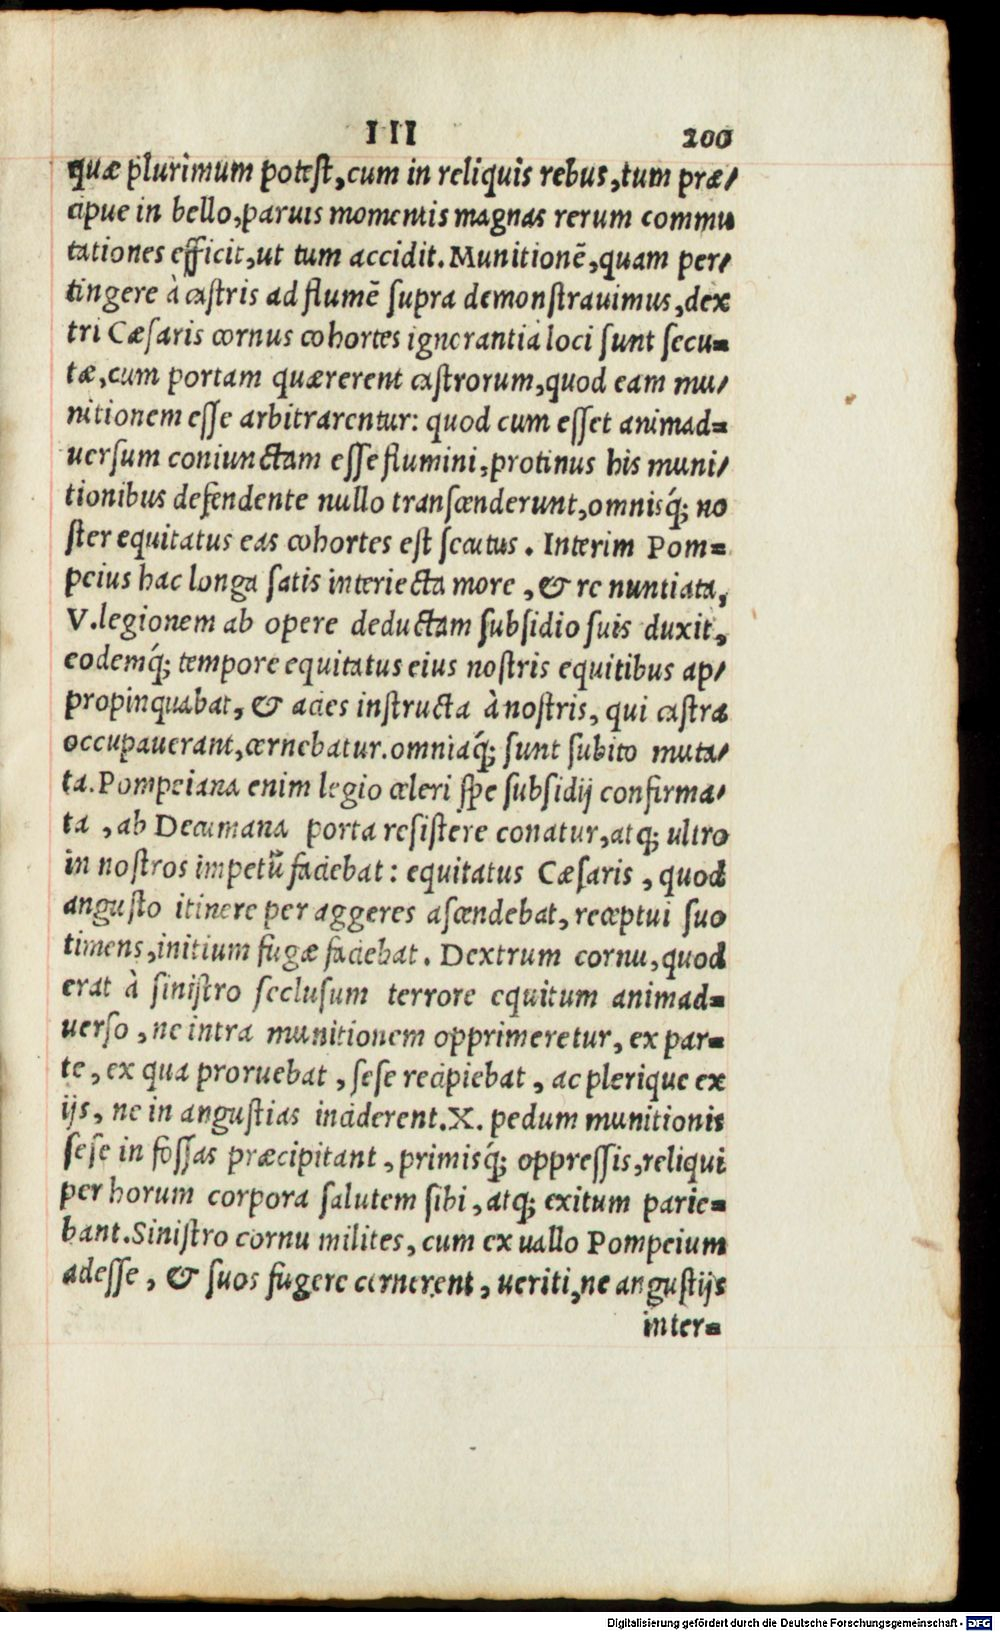 III 200
quæ plurimum potest, cum in reliquis rebus, tum præ-
cipue in bello, paruis momentis magnas rerum commu
tationes efficit, ut tum accidit. Munitionē, quam per-
tingere à castris ad flumē supra demonstrauimus, dex
tri Cæsaris cornus cohortes ignorantia loci sunt secu-
tæ, cum portam quærerent castrorum, quod eam mu-
nitionem esse arbitrarentur: quod cum esset animad-
uersum coniunctam esse flumini, protinus his muni-
tionibus defendente nullo transcenderunt, omnisq́; no
ster equitatus eas cohortes est secutus. Interim Pom-
peius hac longa satis interiecta more, & re nuntiata,
V. legionem ab opere deductam subsidio suis duxit,
eodemq́; tempore equitatus eius nostris equitibus ap-
propinquabat, & acies instructa à nostris, qui castra
occupauerant, cernebatur. omniaq́; sunt subito muta-
ta. Pompeiana enim legio celeri spe subsidij confirma-
ta, ab Decumana porta resistere conatur, atq; ultro
in nostros impetū faciebat: equitatus Cæsaris, quod
angusto itinere per aggeres ascendebat, receptui suo
timens, initium fugæ faciebat. Dextrum cornu, quod
erat à sinistro seclusum terrore equitum animad-
uerso, ne intra munitionem opprimeretur, ex par-
te, ex qua proruebat, sese recipiebat, ac plerique ex
ijs, ne in angustias inciderent. X. pedum munitionis
sese in fossas præcipitant, primisq́; oppressis, reliqui
per horum corpora salutem sibi, atq; exitum parie-
bant. Sinistro cornu milites, cum ex uallo Pompeium
adesse, & suos fugere cernerent, ueriti, ne angustijs
inter-
Digitalisierung gefördert durch die Deutsche Forschungsgemeinschaft - DFG